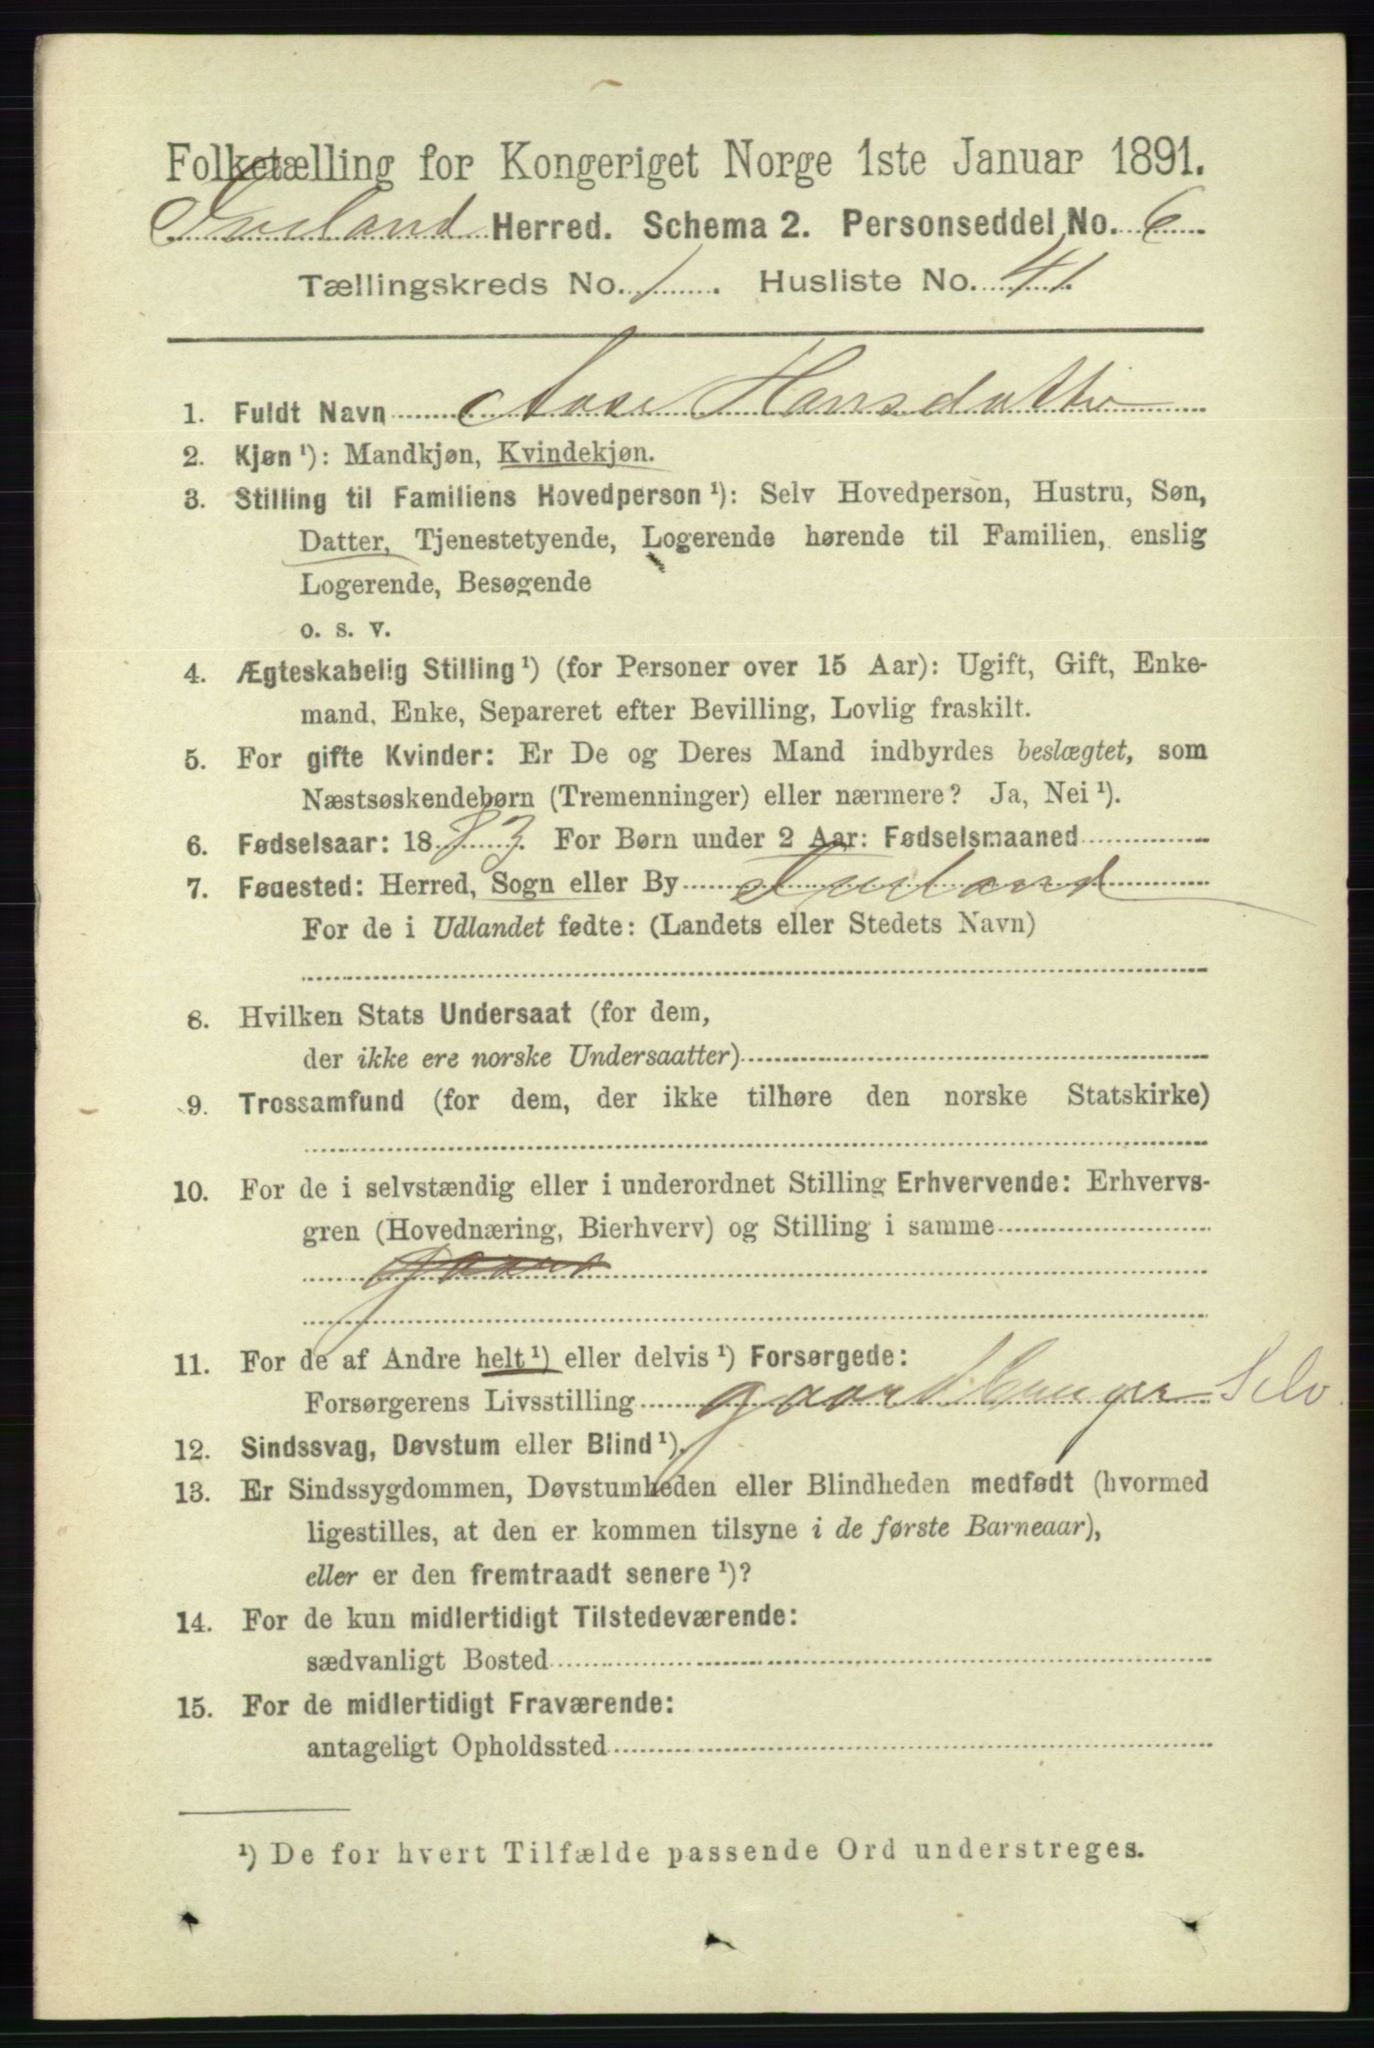 Folketælling for Kongeriget Norge 1ste Januar 1891.
Iveland Herred. Schema 2. Personseddel No. 6
Tællingskreds No. 1. Husliste No. 41.
1. Fuldt Navn Aase Hansdatter
2. Kjøn ¹): Mandkjøn, Kvindekjøn.
3. Stilling til Familiens Hovedperson ¹): Selv Hovedperson, Hustru, Søn,
Datter, Tjenestetyende, Logerende hørende til Familien, enslig
Logerende, Besøgende
o. s. v.
4. Ægteskabelig Stilling ¹) (for Personer over 15 Aar): Ugift, Gift, Enke-
mand, Enke, Separeret efter Bevilling, Lovlig fraskilt.
5. For gifte Kvinder: Er De og Deres Mand indbyrdes beslægtet, som
Næstsøskendebørn (Tremenninger) eller nærmere? Ja, Nei ¹).
6. Fødselsaar: 1883. For Børn under 2 Aar: Fødselsmaaned
7. Fødested: Herred, Sogn eller By Iveland
For de i Udlandet fødte: (Landets eller Stedets Navn)
8. Hvilken Stats Undersaat (for dem,
der ikke ere norske Undersaatter)
9. Trossamfund (for dem, der ikke tilhøre den norske Statskirke)
10. For de i selvstændig eller i underordnet Stilling Erhvervende: Erhvervs-
gren (Hovednæring, Bierhverv) og Stilling i samme
Gaard
11. For de af Andre helt ¹) eller delvis ¹) Forsørgede:
Forsørgerens Livsstilling gaardbruger Selv
12. Sindssvag, Døvstum eller Blind ¹).
13. Er Sindssygdommen, Døvstumheden eller Blindheden medfødt (hvormed
ligestilles, at den er kommen tilsyne i de første Barneaar),
eller er den fremtraadt senere ¹)?
14. For de kun midlertidigt Tilstedeværende:
sædvanligt Bosted
15. For de midlertidigt Fraværende:
antageligt Opholdssted
¹) De for hvert Tilfælde passende Ord understreges.